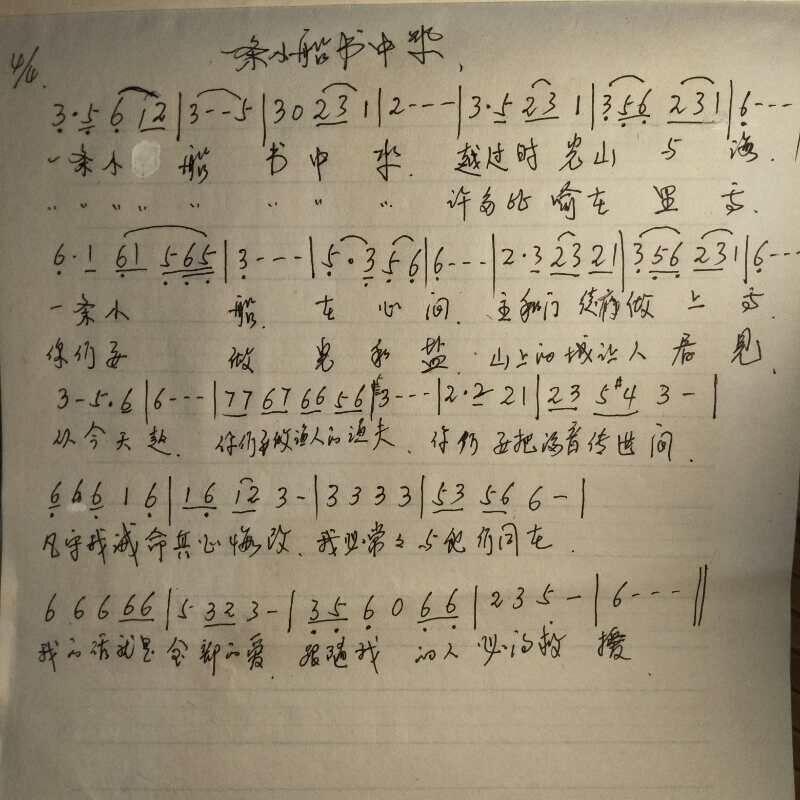 一条小船书中来
4/4
3·5 6 12 | 3--5 | 30 23 1 | 2--- | 3·5 23 1 | 356 231 | 6---
一条小 船 书中来. 越过时光山与海.
〃〃〃〃 〃 〃〃〃 许多比喻在里面.
6·1 61 565 | 3--- | 5·3 56 | 6--- | 2·3 23 21 | 356 231 | 6---
一条小 船. 在心间. 主和门徒 做上面.
你们要 做 光和盐. 山上的城让人看见.
3-5·6 | 6--- | 77 67 66 56 | 3--- | 2·2 21 | 23 5#4 3- |
从今天起. 你们要做渔人的渔夫. 你们要把福音传世间.
6 6 6 1 6 | 16 12 3- | 3 3 3 3 | 53 56 6- |
凡守我诫命真心悔改. 我必常常与他们同在.
6 6 6 66 | 5 32 3- | 35 6 0 66 | 2 3 5- | 6--- ||
我的话就是全部的爱 跟随我 的人必得救援